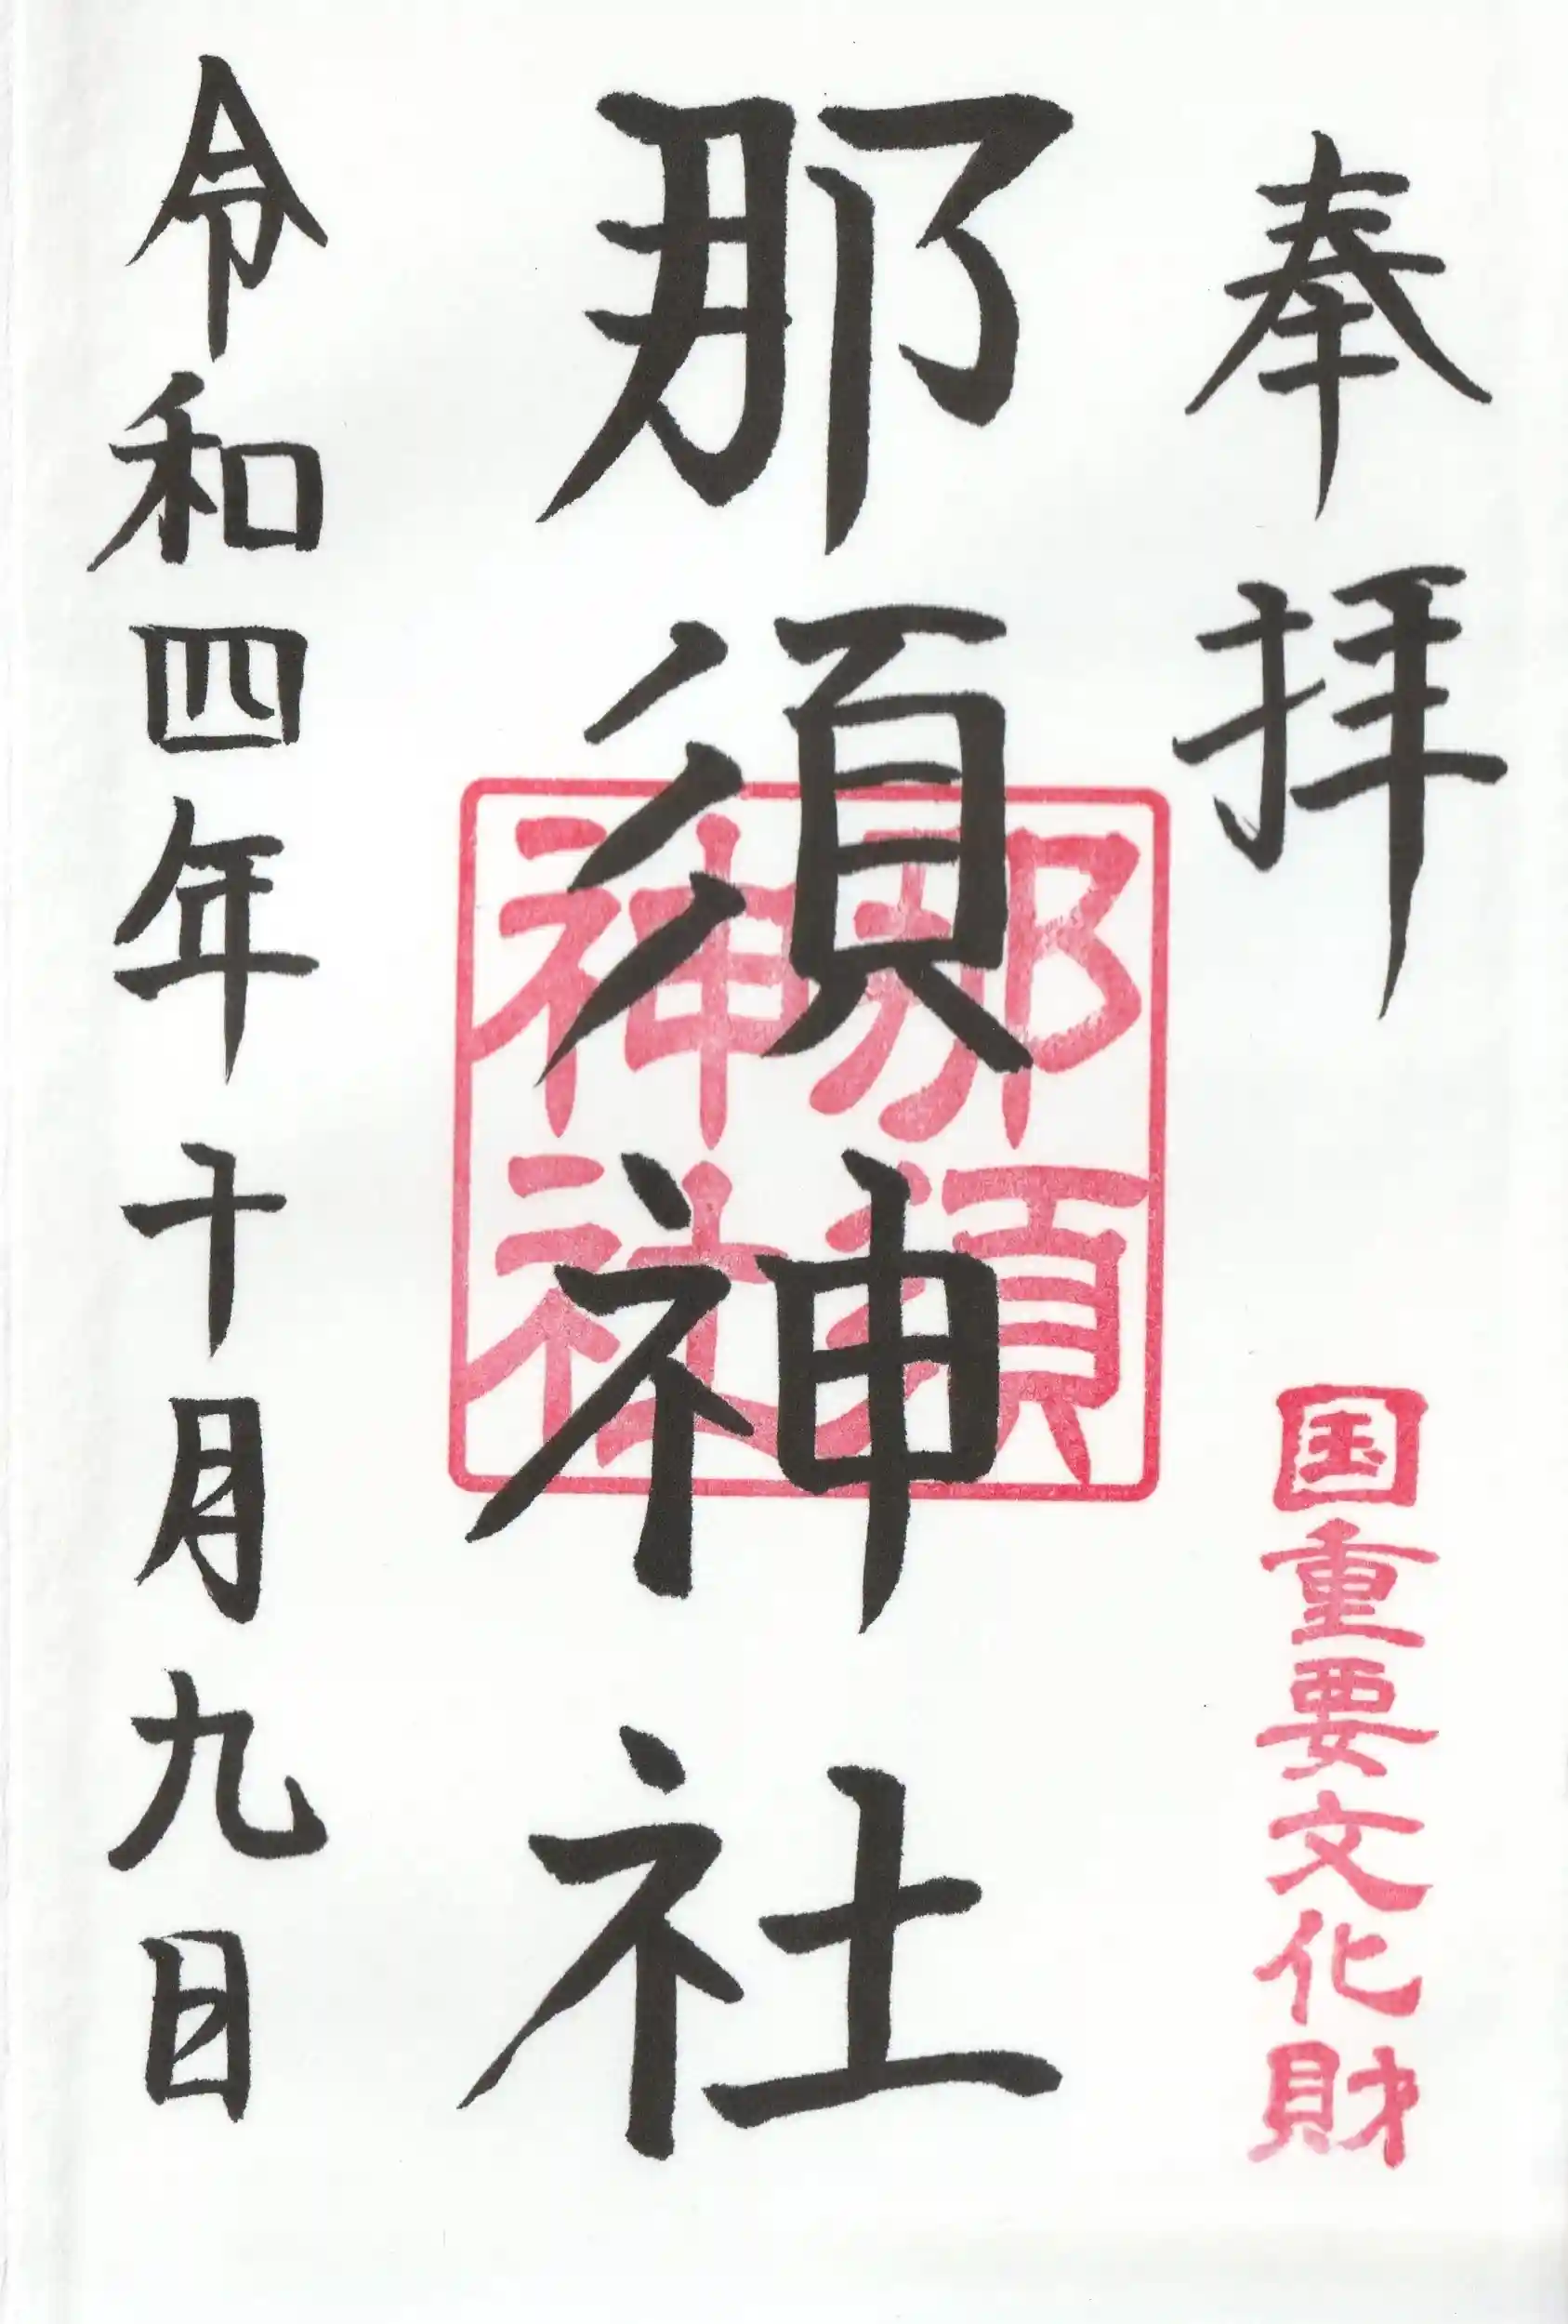 奉拝
国重要文化財
那須神社
那須
神社
令和四年十月九日